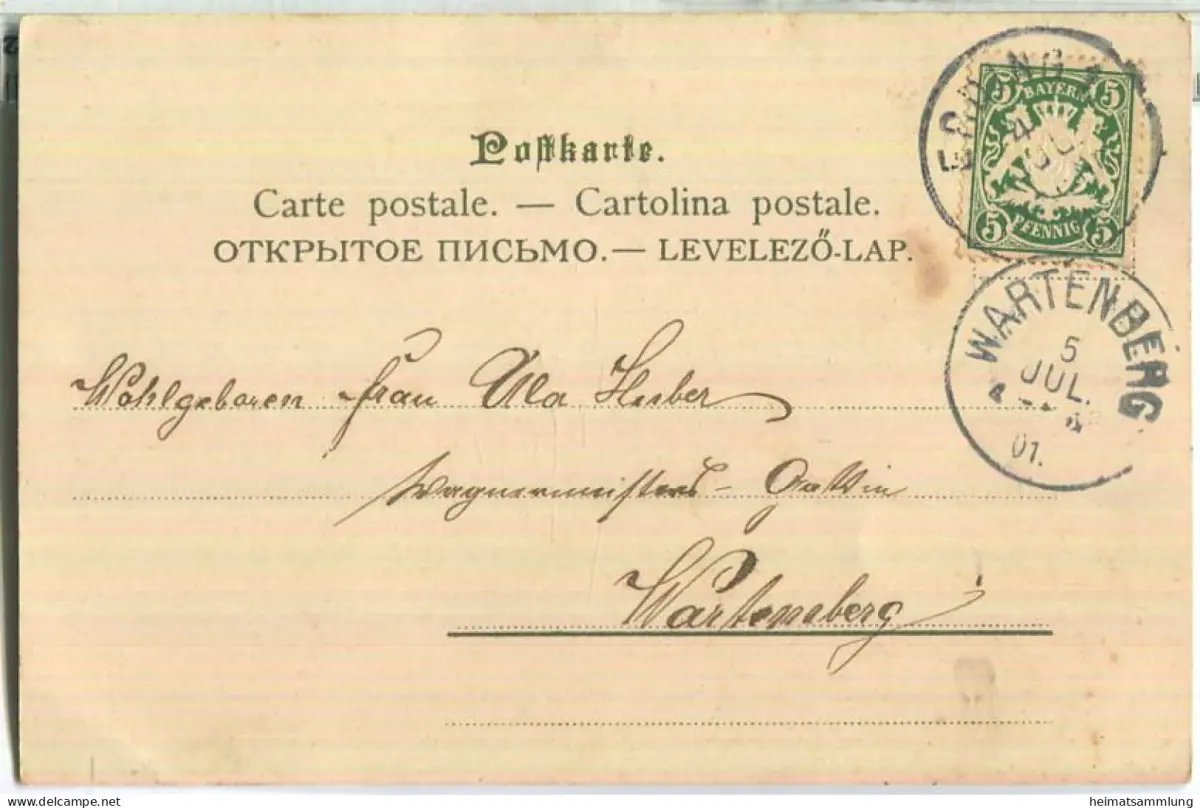 Postkarte.
Carte postale. — Cartolina postale.
ОТКРЫТОЕ ПИСЬМО. — LEVELEZŐ-LAP.
ERDING
4
JUL
5 BAYERN 5
5 PFENNIG 5
WARTENBERG
5
JUL.
01.
Wohlgeboren Frau Ula Huber
Wagnermeisters - Gattin
Wartenberg
heimatsammlung